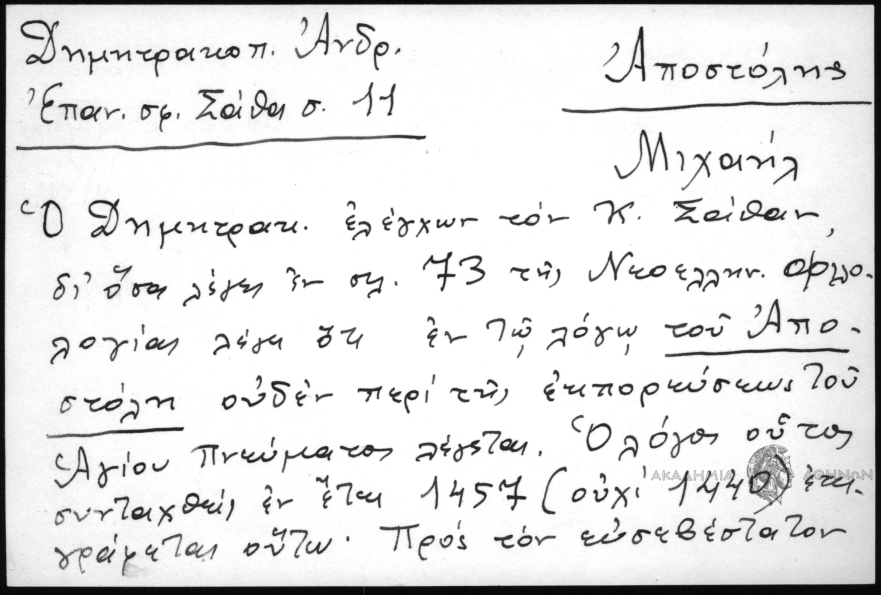 Δημητρακοπ. Ἀνδρ.
Ἐπαν. σφ. Σάθα σ. 11
Ἀποστόλης
Μιχαήλ
Ὁ Δημητρακ. ἐλέγχων τόν Κ. Σάθαν,
δι' ὅσα λέγει ἐν σελ. 73 τῆς Νεοελλην. Φιλο-
λογίας λέγει ὅτι ἐν τῷ λόγῳ τοῦ Ἀπο-
στόλη οὐδέν περί τῆς ἐκπορεύσεως τοῦ
Ἁγίου Πνεύματος λέγεται. Ὁ λόγος οὗτος
συνταχθείς ἐν ἔτει 1457 (οὐχί 1440) ἐπι-
γράφεται οὕτω· Πρός τόν εὐσεβέστατον
ΑΚΑΔΗΜΙΑ ΑΘΗΝΩΝ